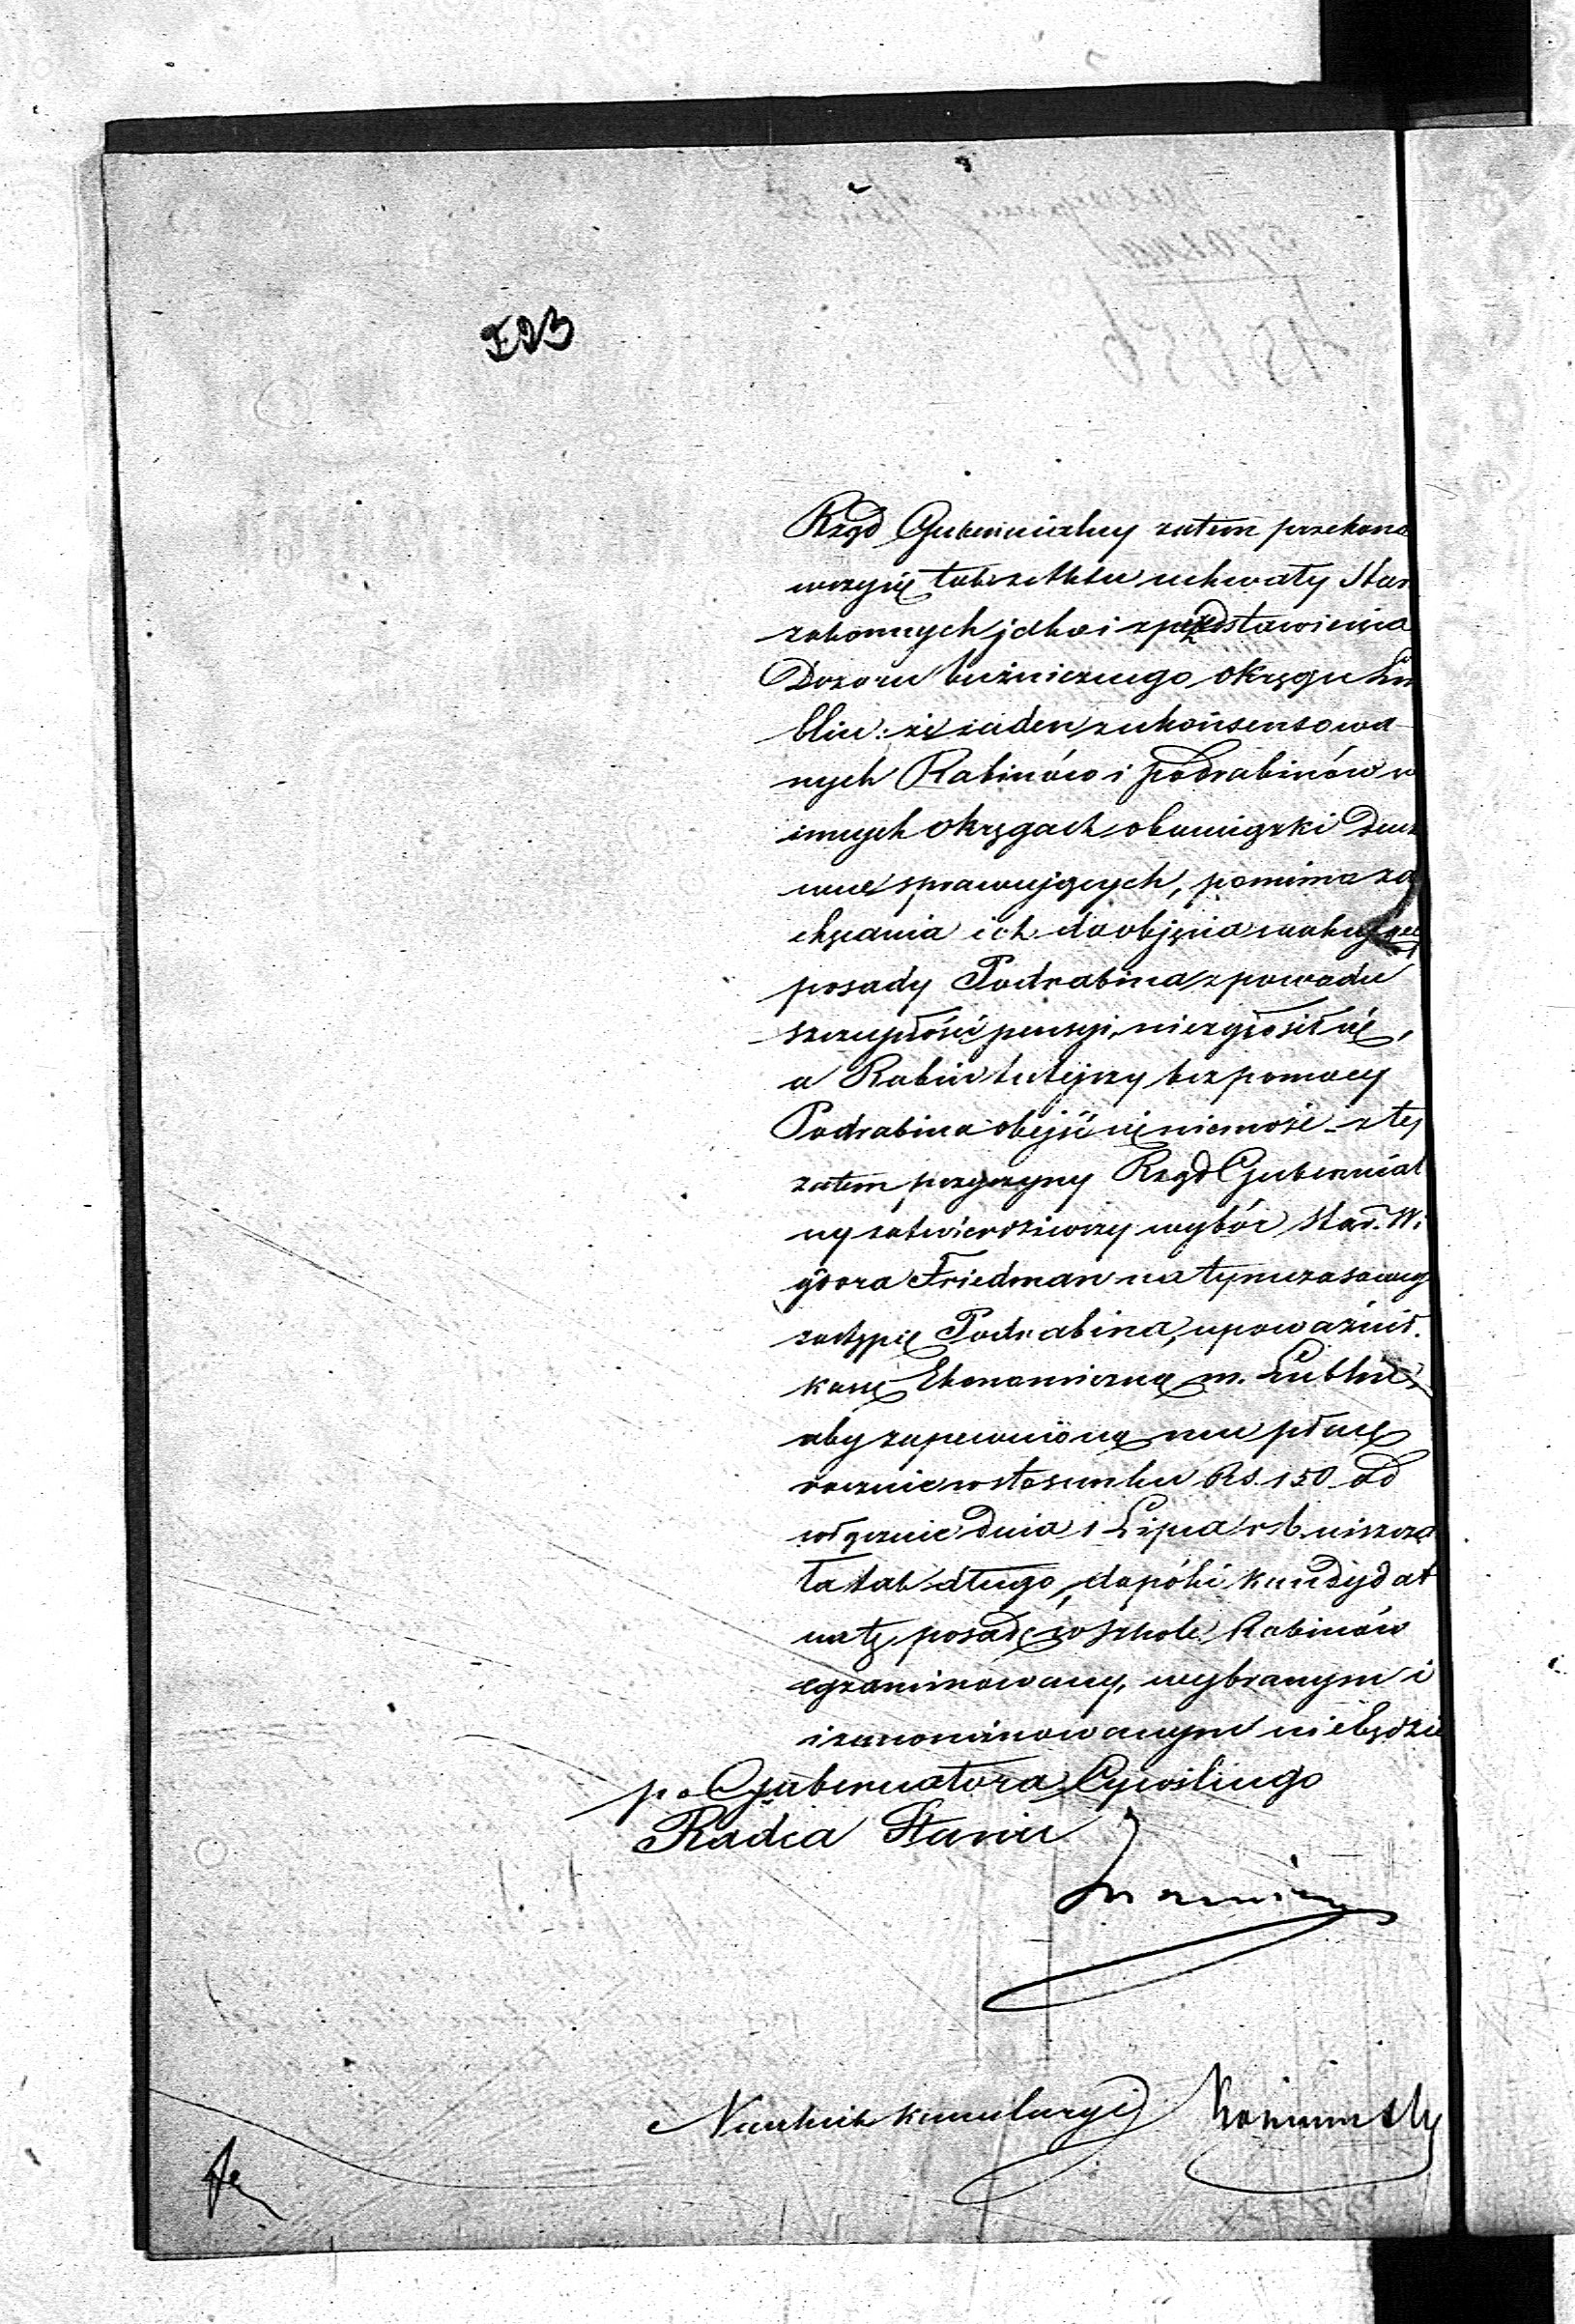 Rząd Gubernialny zatem przekona
wszy się tak z aktu uchwały Star
zakonnych jako i z przedstawienia
Dozoru bużniczego okręgu Lu
blin: że żaden z ukonsensowa
nych Rabinów i podrabinów w
innych okręgach obowiązki Duch
wne sprawujących, pomimo za
chęcania ich do objęcia wakującej
posady Podrabina z powodu
szczupłości pensyi, niezgłosił się,
a Rabin tutejszy bez pomocy
Podrabina obejść się niemoże - z tej
zatem przyczyny Rząd Gubernial
ny zatwierdziwszy wybór Star. Wi
gdora Friedman na tymczasowego
zastępcę Podrabina, upoważnił
kassę Ekonomiczną m. Lublina
aby zapewnioną mu płacę
rocznie w stosunku Rs. 150 od
włącznie dnia 1 Lipca r b. uiszcza
ła tak długo, dopóki kandydat
na tę posadę w szkole Rabinów
egzaminowany, wybranym i
i zanominowanym niebędzie
po Gubernatora Cywilnego
Radca Stanu
Naczelnik kancelaryi